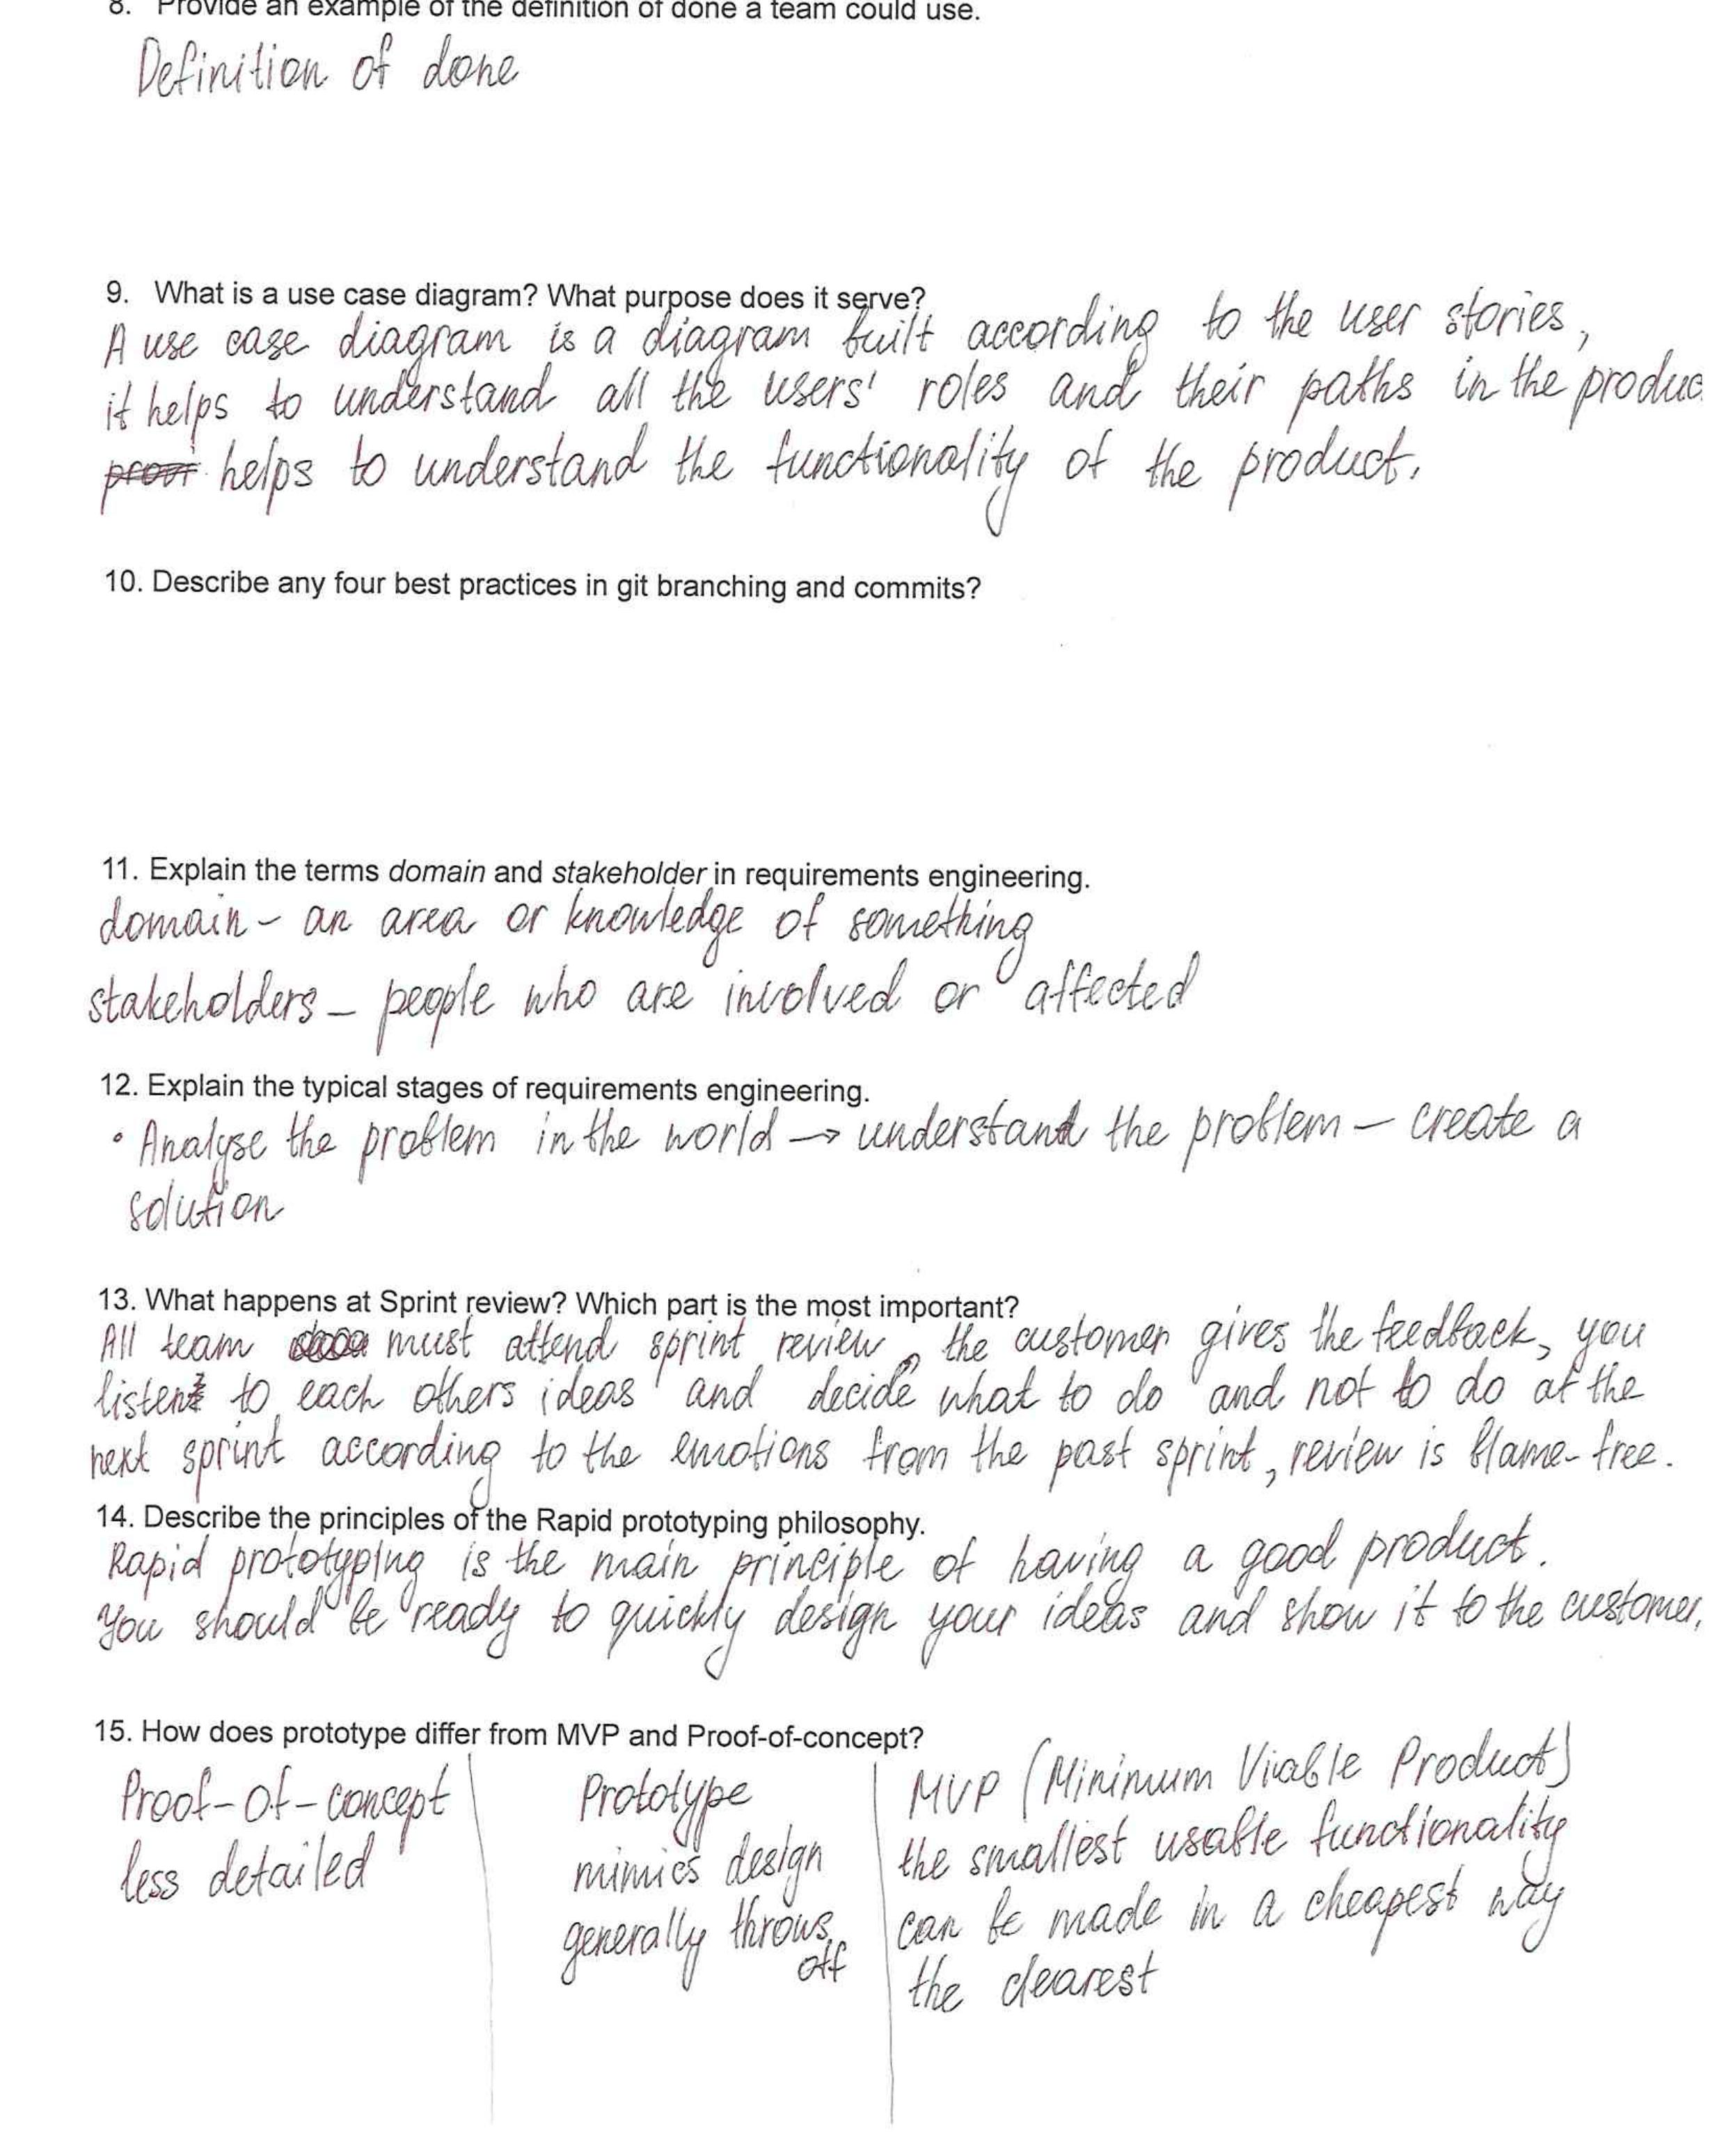 8. Provide an example of the definition of done a team could use.
Definition of done
9. What is a use case diagram? What purpose does it serve?
A use case diagram is a diagram built according to the user stories,
it helps to understand all the users' roles and their paths in the produc
helps to understand the functionality of the product.
10. Describe any four best practices in git branching and commits?
11. Explain the terms domain and stakeholder in requirements engineering.
domain – an area or knowledge of something
stakeholders – people who are involved or affected
12. Explain the typical stages of requirements engineering.
• Analyse the problem in the world → understand the problem – create a
solution
13. What happens at Sprint review? Which part is the most important?
All team must attend sprint review, the customer gives the feedback, you
listen to each others ideas and decide what to do and not to do at the
next sprint according to the emotions from the past sprint, review is blame-free.
14. Describe the principles of the Rapid prototyping philosophy.
Rapid prototyping is the main principle of having a good product.
You should be ready to quickly design your ideas and show it to the customer.
15. How does prototype differ from MVP and Proof-of-concept?
Proof-of-concept
less detailed
Prototype
mimics design
generally throws
off
MVP (Minimum Viable Product)
the smallest usable functionality
can be made in a cheapest way
the clearest